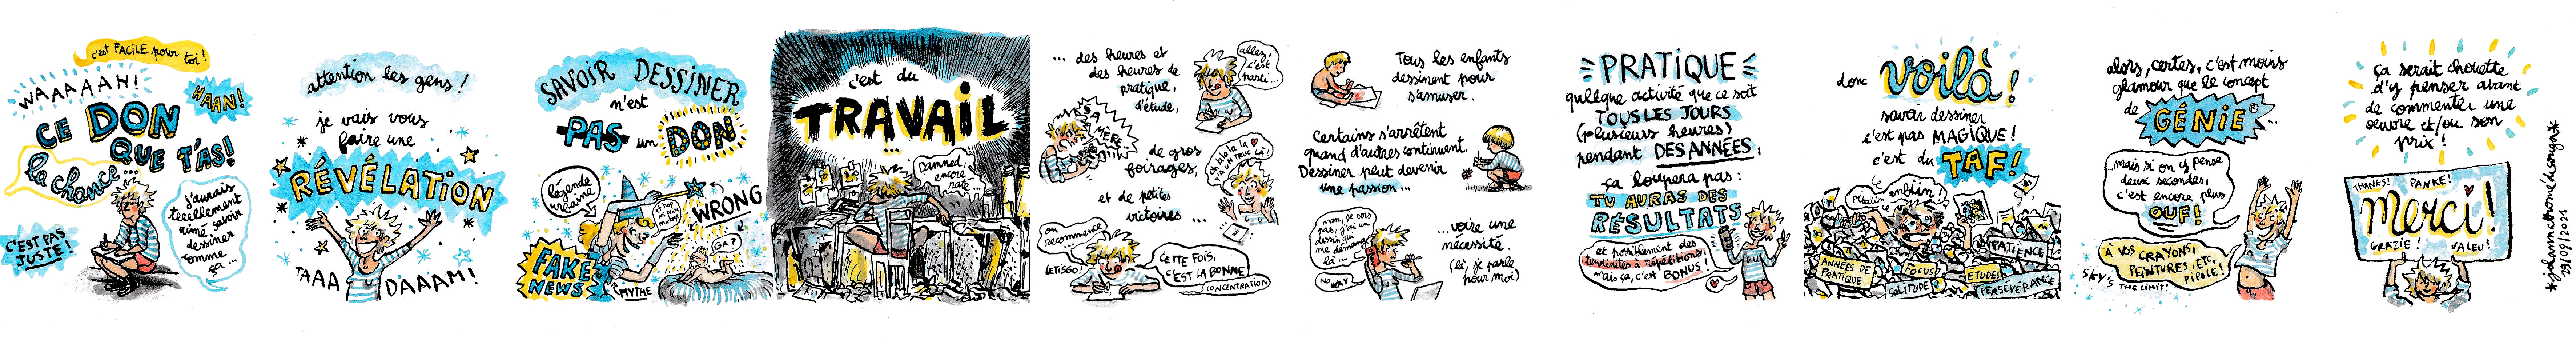 c'est FACILE pour toi !
WAAAAAH!
HAAN!
CE DON
QUE T'AS!
la chance...
j'aurais
teeellement
aimé savoir
dessiner
comme
ça...
C'EST PAS
JUSTE !
attention les gens !
je vais vous
faire une
RÉVÉLATION
TAAA
DAAAM!
SAVOIR DESSINER
n'est
PAS un DON
légende
urbaine
WRONG
GA?
FAKE
NEWS
MYTHE
c'est du
TRAVAIL
...
Damned,
encore
raté...
... des heures et
des heures de
pratique,
d'étude,
allez !
c'est
parti...
de gros
foirages,
oh la la la
et de petites
victoires ...
on
recommence
LETSGO!
CETTE FOIS,
C'EST LA BONNE !
CONCENTRATION
Tous les enfants
dessinent pour
s'amuser.
Certains s'arrêtent
quand d'autres continuent.
Dessiner peut devenir
une passion...
nan, je sors
pas, j'ai un
dessin qui
me démange
là...
NO WAY
...voire une
nécessité.
(là, je parle
pour moi)
PRATIQUE
quelque activité que ce soit
TOUS LES JOURS
(plusieurs heures)
pendant DES ANNÉES,
ça loupera pas :
TU AURAS DES
RÉSULTATS
et possiblement des
tendinites à répétitions,
mais ça, c'est BONUS !
donc voilà !
savoir dessiner
c'est pas MAGIQUE !
c'est du TAF !
PATIENCE
ANNÉES DE
PRATIQUE
FOCUS
ÉTUDES
SOLITUDE
PERSÉVÉRANCE
alors, certes, c'est moins
glamour que le concept
de GÉNIE©...
...mais si on y pense
deux secondes,
c'est encore plus
OUF !
À VOS CRAYONS,
PEINTURES, ETC,
PIPOLE !
SKY'S THE LIMIT!
ça serait chouette
d'y penser avant
de commenter une
œuvre et/ou son
prix !
THANKS! PANKE!
merci !
GRAZIE ! VALEU !